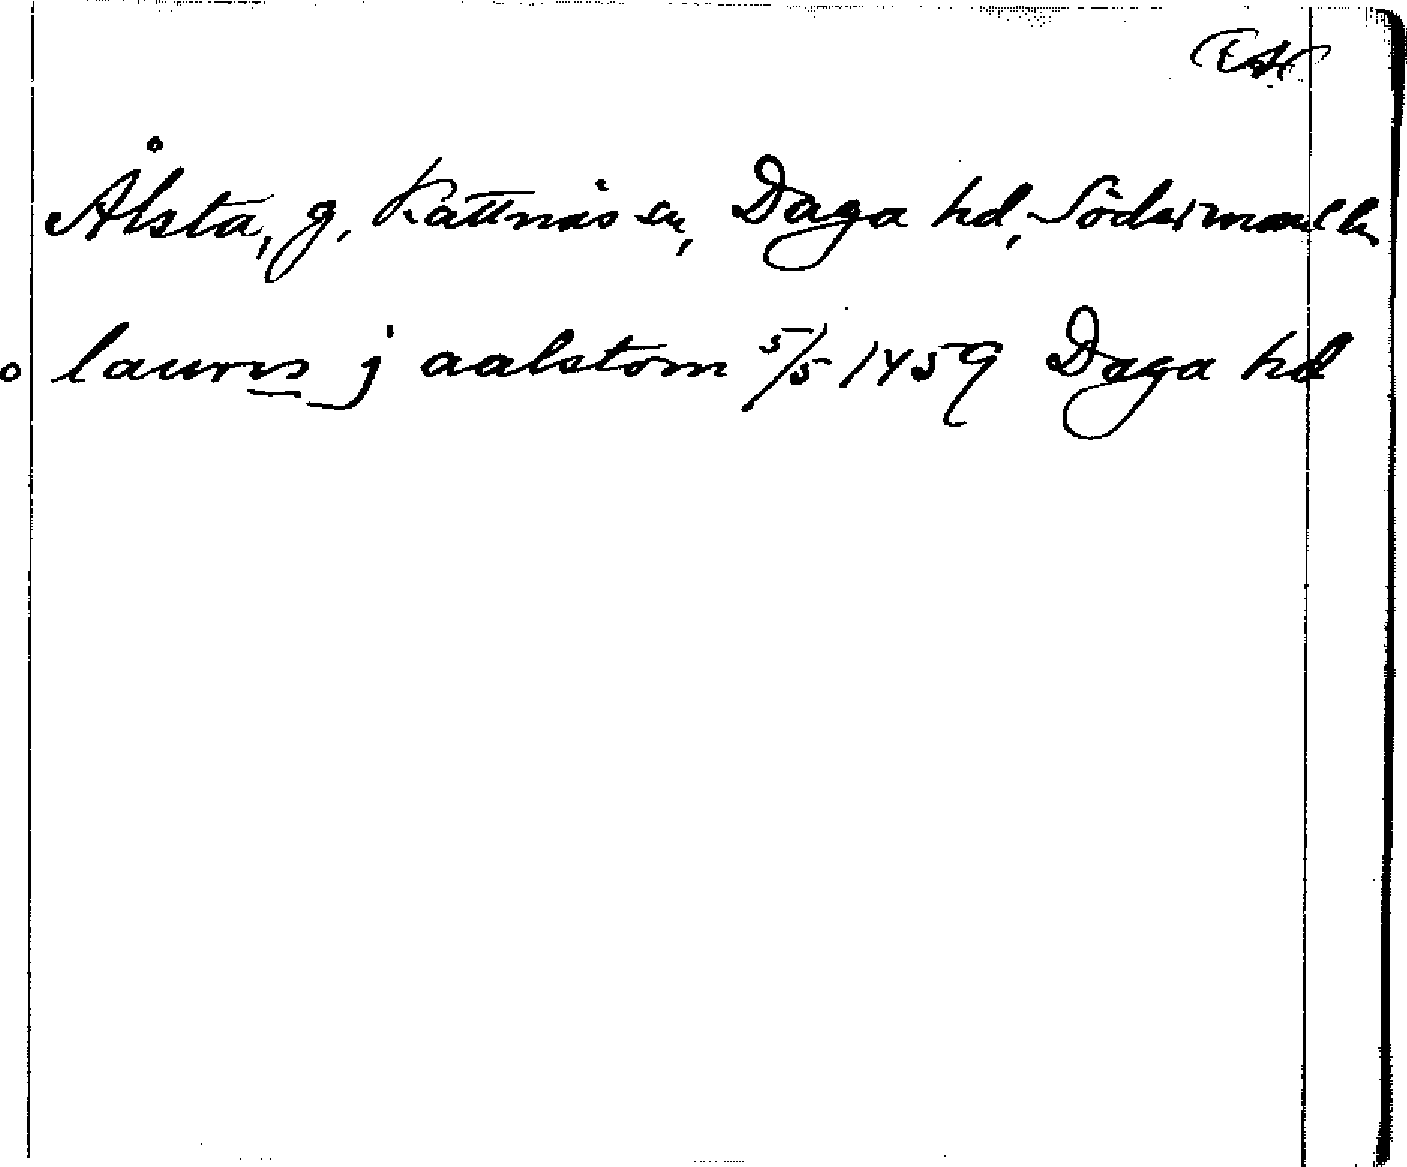 Ålsta, g, Kattnäs sn, Daga hd, Södermanl ln
laurens j aalstom 5/5 1459 Daga hd